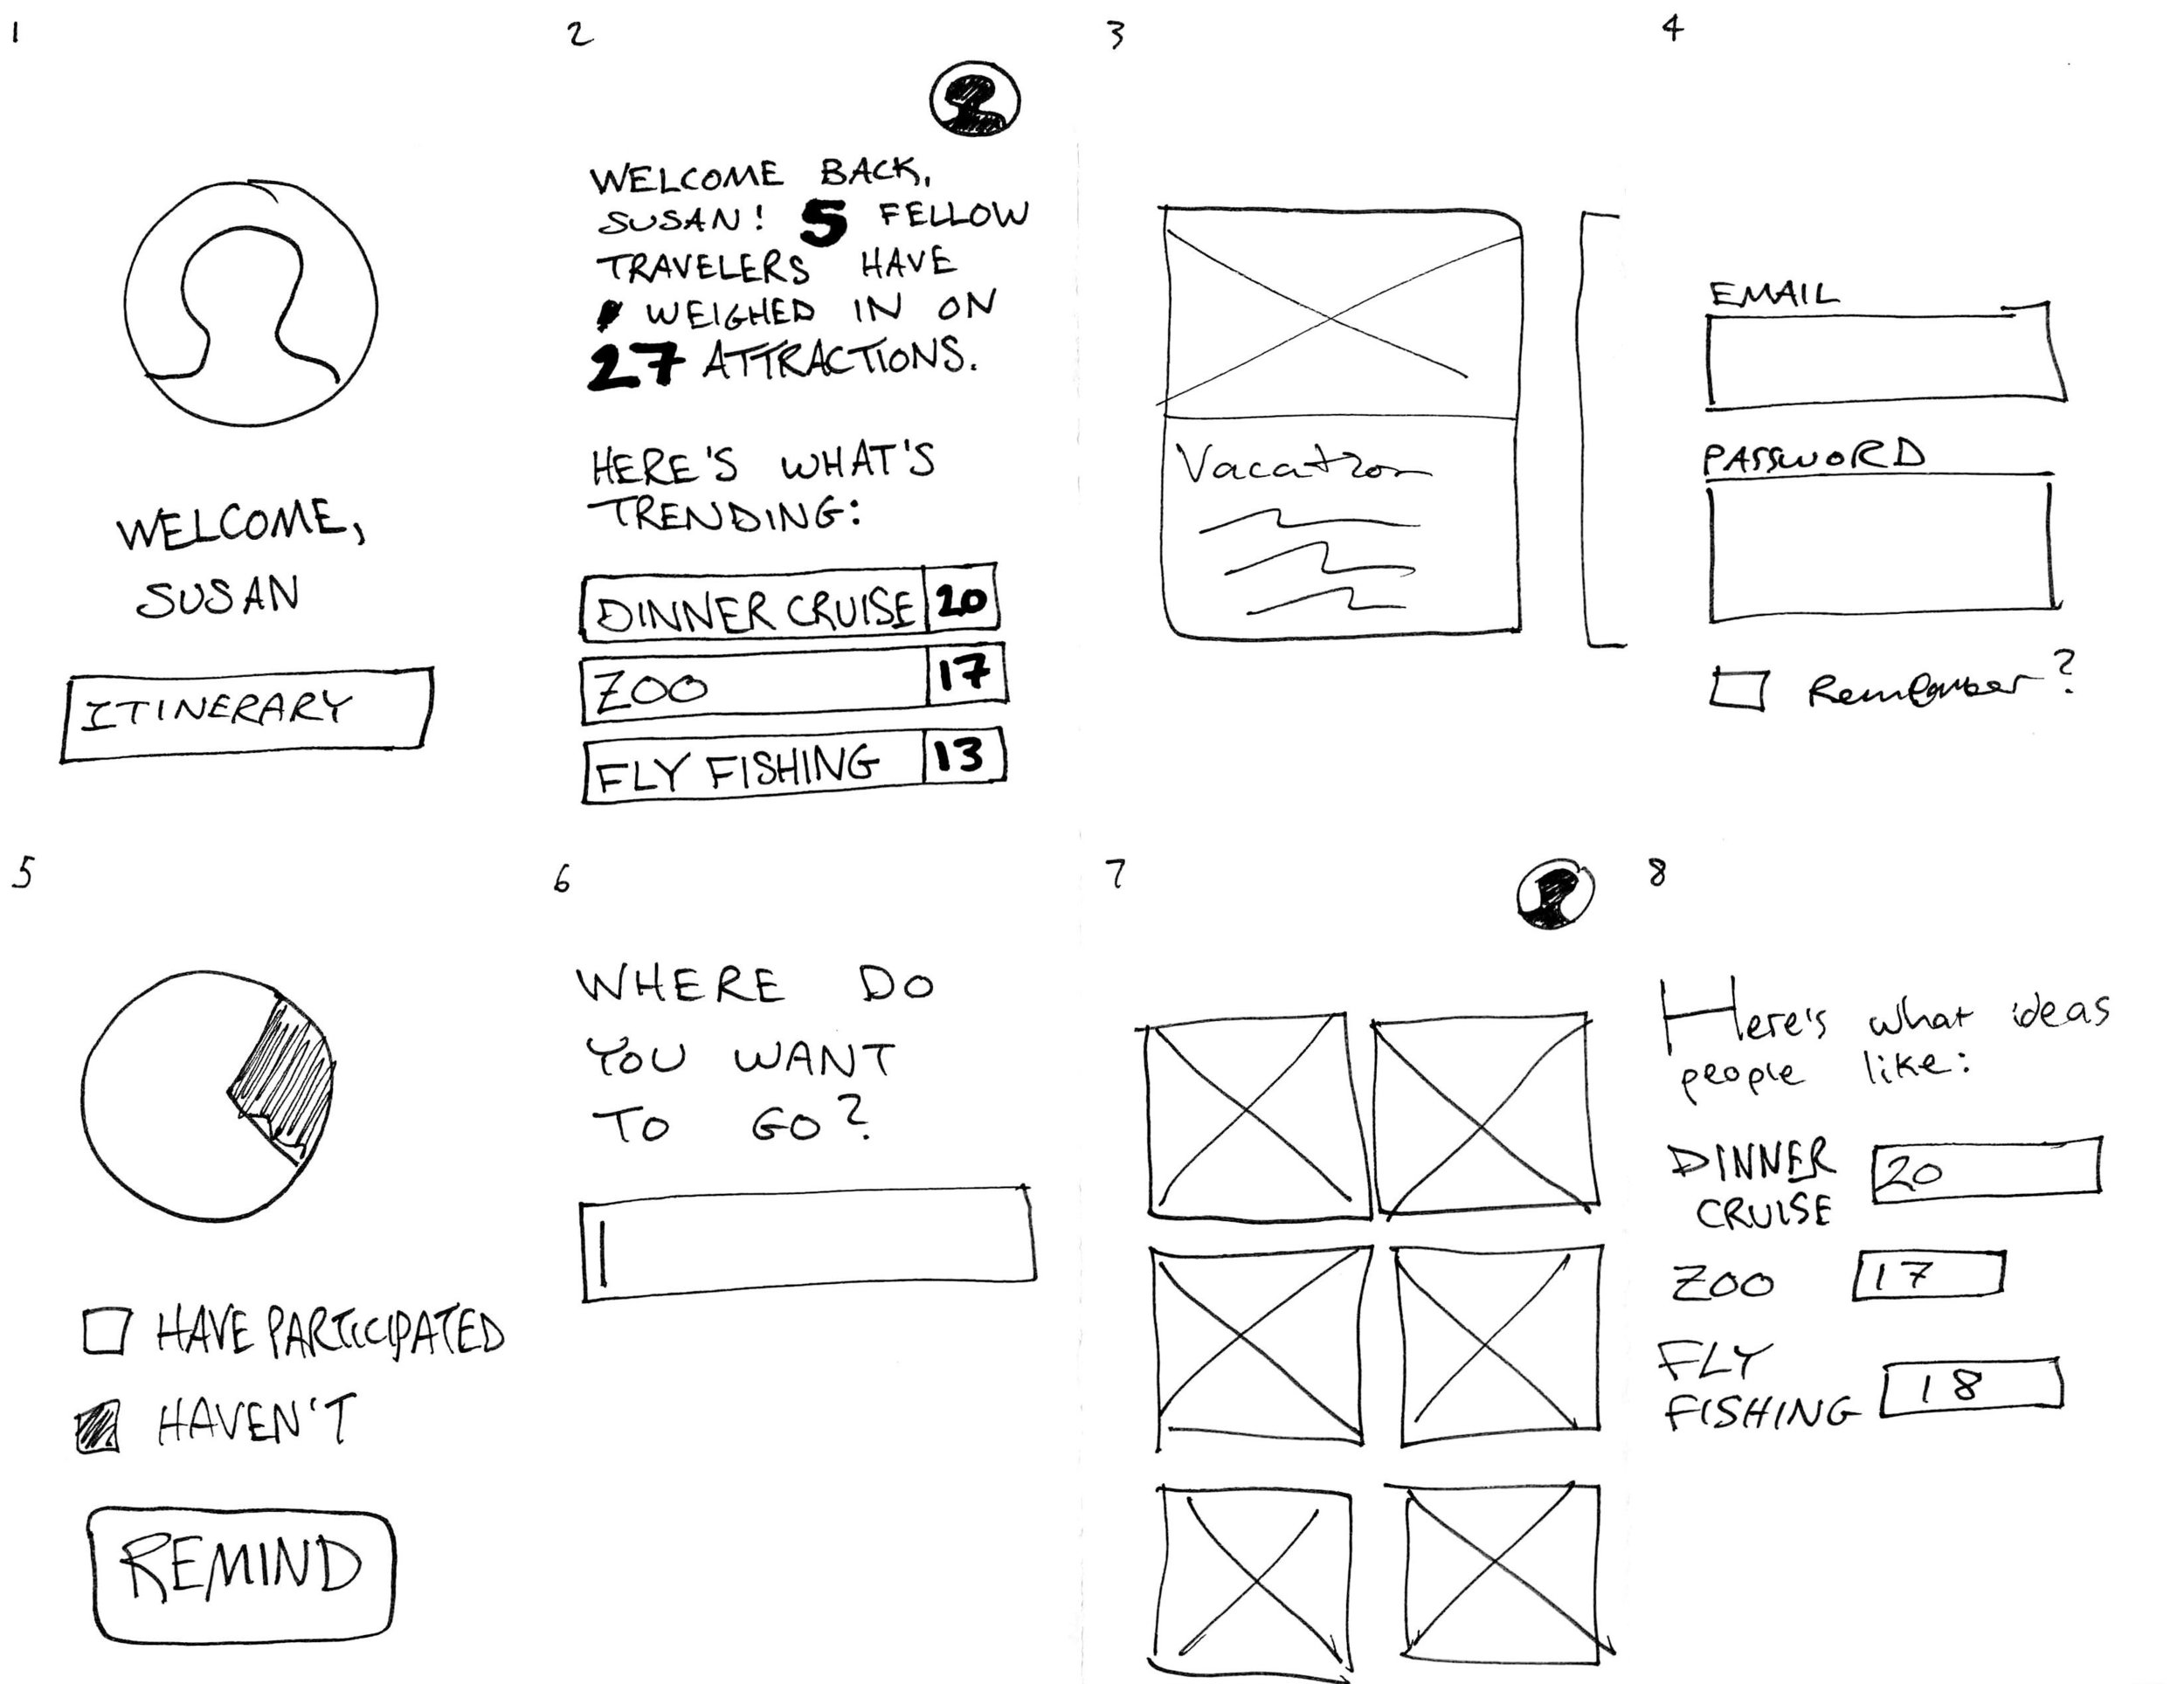 1
WELCOME,
SUSAN
ITINERARY
2
WELCOME BACK,
SUSAN! 5 FELLOW
TRAVELERS HAVE
WEIGHED IN ON
27 ATTRACTIONS.
HERE'S WHAT'S
TRENDING:
DINNER CRUISE 20
ZOO 17
FLY FISHING 13
3
Vacation
4
EMAIL
PASSWORD
Remember?
5
HAVE PARTICIPATED
HAVEN'T
REMIND
6
WHERE DO
YOU WANT
TO GO?
7
8
Here's what ideas
people like:
DINNER 20
CRUISE
ZOO 17
FLY
FISHING 18